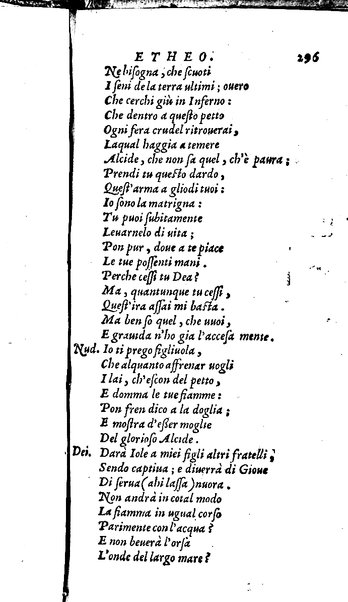 ETHEO. 296
Ne bisogna, che scuoti
I seni de la terra ultimi; ouero
Che cerchi giù in Inferno:
Che dentro a questo petto
Ogni fera crudel ritrouerai,
Laqual haggia a temere
Alcide, che non sa quel, ch'è paura;
Prendi tu questo dardo,
Quest'arma a gliodi tuoi:
Io sono la matrigna:
Tu puoi subitamente
Leuarnelo di uita;
Pon pur, doue a te piace
Le tue possenti mani.
Perche cessi tu Dea?
Ma, quantunque tu cessi,
Quest'ira assai mi basta.
Ma ben so quel, che uuoi,
E grauida n'ho gia l'accesa mente.
Nud. Io ti prego figliuola,
Che alquanto affrenar uogli
I lai, ch'escon del petto,
E domma le tue fiamme:
Pon fren dico a la doglia;
E mostra d'esser moglie
Del glorioso Alcide.
Dei. Darà Iole a miei figli altri fratelli,
Sendo captiua; e diuerrà di Gioue
Di serua (ahi lassa) nuora.
Non andrà in cotal modo
La fiamma in ugual corso
Parimente con l'acqua?
E non beuerà l'orsa
L'onde del largo mare?